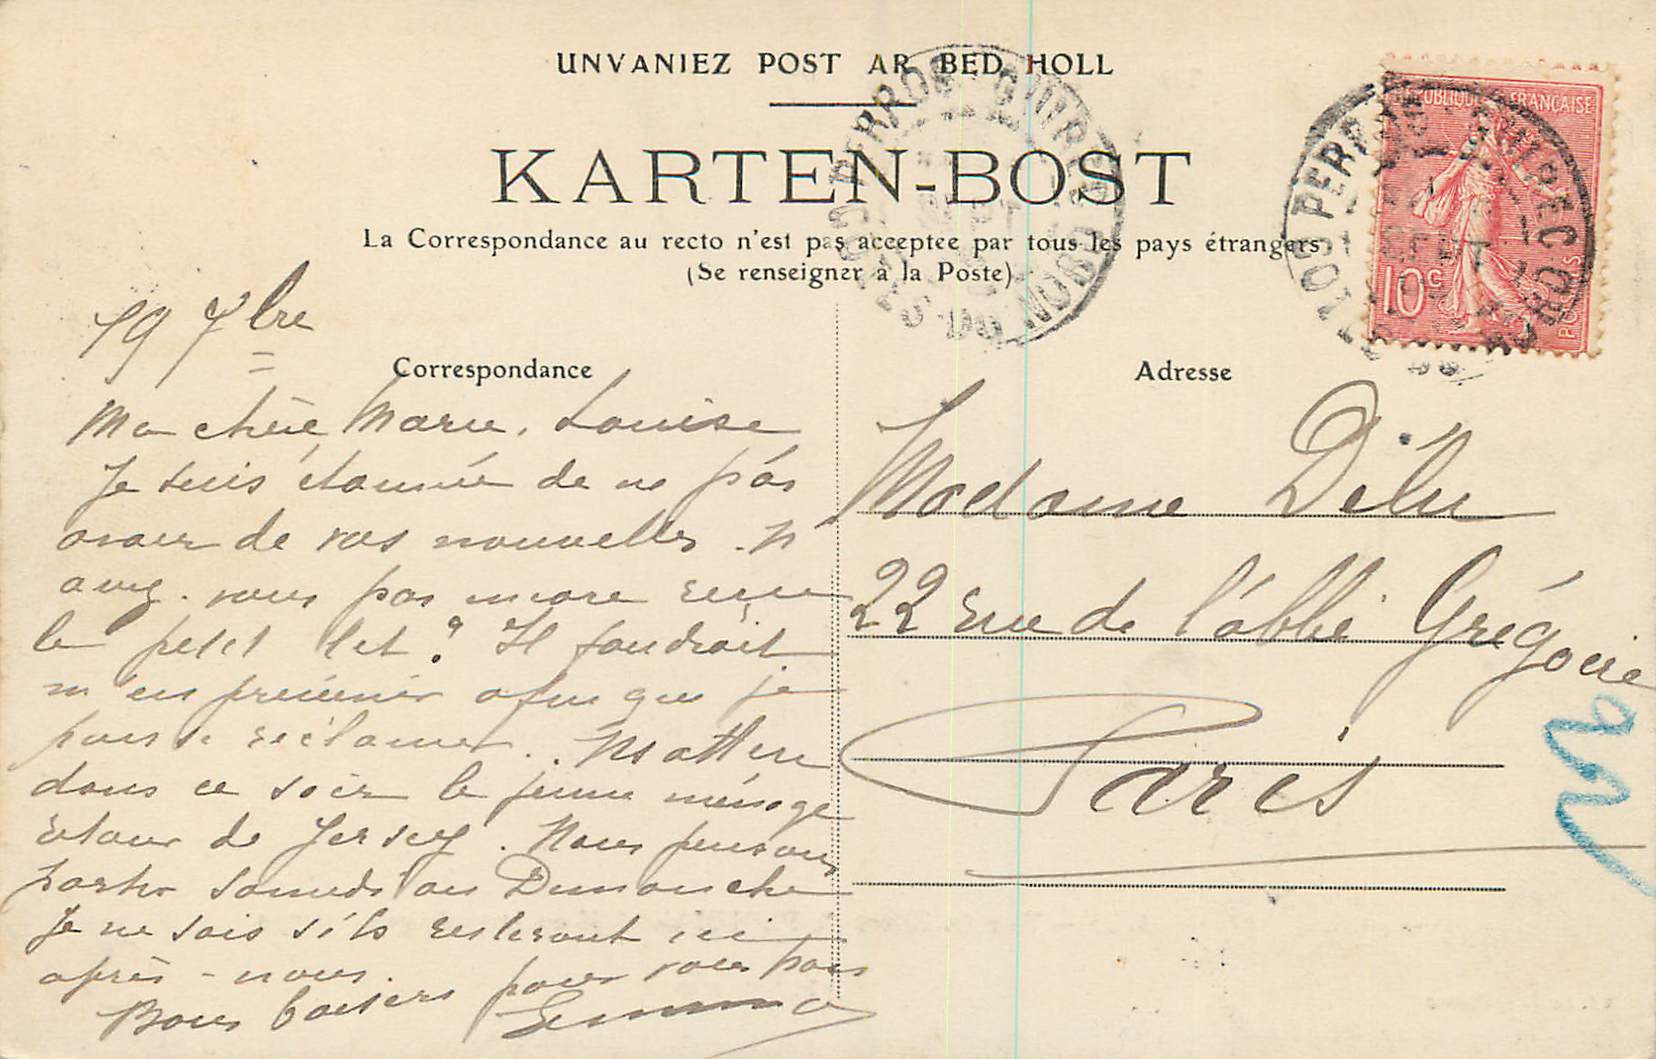 UNVANIEZ POST AR BED HOLL
KARTEN-BOST
La Correspondance au recto n'est pas acceptee par tous les pays étrangers
(Se renseigner à la Poste)
REPUBLIQUE FRANÇAISE
10c
POSTES
PERROS-GUIREC
COTES DU NORD
SEPT
PERROS-GUIREC
COTES DU NORD
SEPT
19 7bre
Correspondance
Ma chère Marie, Louise
Je suis étonnée de ne pas
avoir de vos nouvelles. N'
avez-vous pas encore reçu
le petit lit? Il faudrait
m'en prévenir afin que je
puisse réclamer.
dans ce soir le jeune ménage
retour de Jersey. Nous pensons
partir samedi ou Dimanche
Je ne sais s'ils resteront ici
après-nous.
Bons baisers pour vous tous
Emma
Adresse
Madame Delu
22 rue de l'abbé Grégoire
Paris